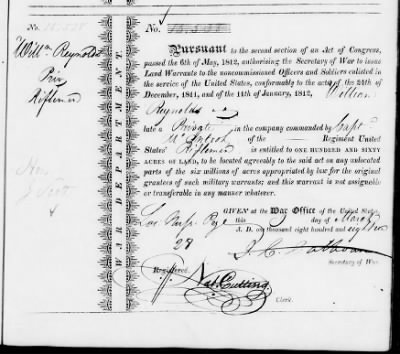 No.
Will^m Reynolds
Priv
Riflemen
WAR DEPARTMENT.
No.
Pursuant to the second section of an Act of Congress,
passed the 6th of May, 1812, authorising the Secretary of War to issue
Land Warrants to the noncommissioned Officers and Soldiers enlisted
in the service of the United States, conformably to the acts of the 24th of
December, 1811, and of the 11th of January, 1812, William
Reynolds
late a Private in the company commanded by Capt
McIntosh of the Regiment United
States' Riflemen is entitled to ONE HUNDRED AND SIXTY
ACRES OF LAND, to be located agreeably to the said act on any unlocated
parts of the six millions of acres appropriated by law for the original
grantees of such military warrants; and this warrant is not assignable
or transferable in any manner whatever.
GIVEN at the War Office of the United States,
this day of March
A. D. one thousand eight hundred and eighteen
28
J. C. Calhoun
Secretary of War.
Registered.
Nat Cutting
Clerk.